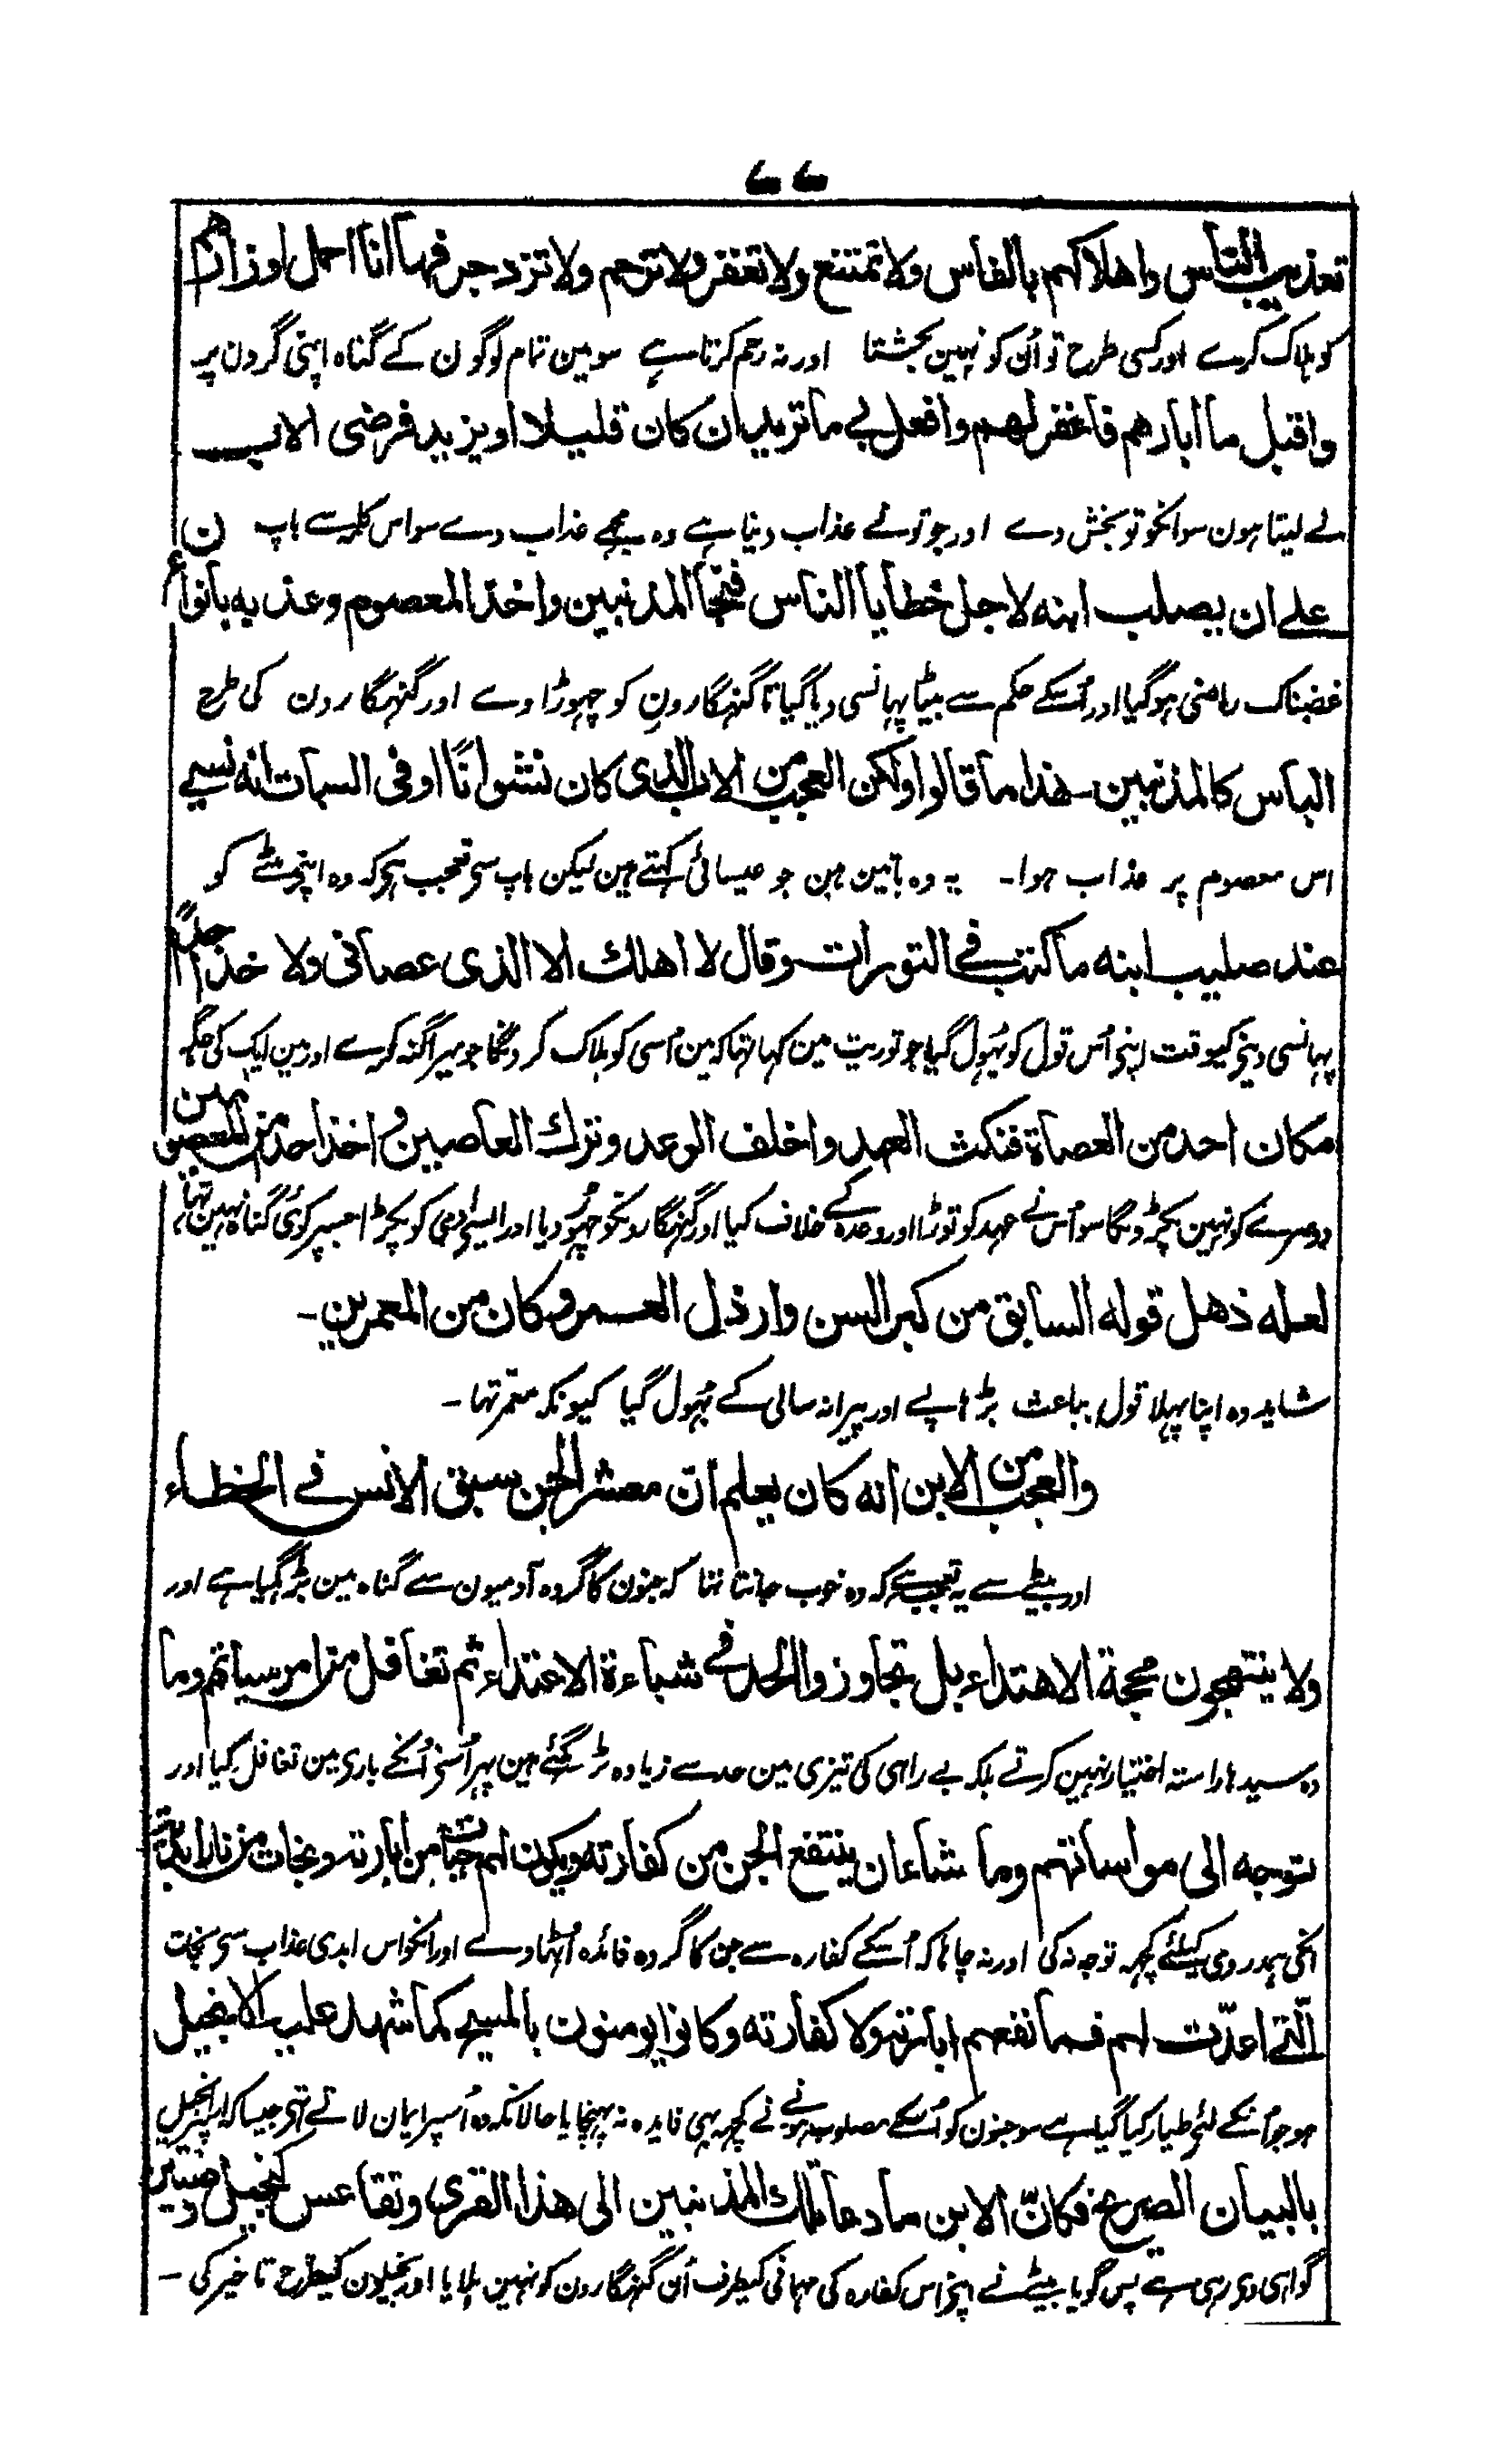 ۷۷
تعذيب الناس واهلاكهم بالفاس ولا تمتنع ولا تغفر ولا ترحم ولا تزدجر فها انا احمل اوزارهم
کو ہلاک کرے اور کسی طرح تو اُن کو نہین بخشتا اور نہ رحم کرتا ہے سو مین تمام لوگون کے گناہ اپنی گردن پر
واقبل ما ابارهم فاغفر لهم وافعل بي ما تريد ان كان قليلا او يزيد فرضى الاب
لے لیتا ہون سو انکو تو بخش دے اور جو تونے عذاب دینا ہے وہ مجھے عذاب دے سو اس کلمہ سے باپ
على ان يصلب ابنه لاجل خطايا الناس فنجا المذنبين واخذ المعصوم وعذبه بانواع
غضبناک راضی ہو گیا اور اُسکے حکم سے بیٹا پہانسی دیا گیا تا گنہگارون کو چہوڑا وے اور گنہگارون کی طرح
الباس كالمذنبين۔ هذا ما قالوا ولكن العجب من الاب الذى كان نشوانًا او فى السبات انه نسى
اس معصوم پر عذاب ہوا۔ یہ وہ باتین ہین جو عیسائی کہتے ہین لیکن باپ سے تعجب ہے کہ وہ اپنے بیٹے کو
عند صليب ابنه ما كتب فى التورات وقال لا اهلك الا الذى عصانى ولا اخذ احدًا
پہانسی دینے کیوقت اپنے اُس قول کو بُہول گیا جو توریت مین کہا تہا کہ مین اُسی کو ہلاک کرونگا جو میرا گنہ کرے اور مین ایک کی جگہ
مكان احد من العصاة فنكث العهد واخلف الوعد وترك العاصين واخذ احدًا من المعصومين
دوسرے کو نہین پکڑونگا سو اُس نے عہد کو توڑا اور وعدہ کے خلاف کیا اور گنہگارونکو چہوڑ دیا اور ایسے آدمی کو پکڑا جسپر کوئی گناہ نہین تہا
لعله ذهل قوله السابق من كبر السن وارذل العمر وكان من المعمرين۔
شاید وہ اپنا پہلا قول بباعث بڑہاپے اور پیرانہ سالی کے بُہول گیا کیونکہ معمّر تہا۔
والعجب من الابن انه كان يعلم انّ معشر الجن سبق الانس فى الخطاء
اور بیٹے سے یہ تعجب ہے کہ وہ خوب جانتا تہا کہ جنون کا گروہ آدمیون سے گناہ مین بڑہ گیا ہے اور
ولا ينتهجون محجة الاهتداء بل تجاوزوا الحد فى شباءة الاعتداء ثم تغافل من امر سياتهم وما
وہ سیدہا راستہ اختیار نہین کرتے بلکہ بے راہی کی تیزی مین حد سے زیادہ بڑہ گئے ہین پہر اُسنے اُنکے بارہ مین تغافل کیا اور
توجه الى مواساتهم وما شاء ان ينتفع الجن من كفارته ويكون لهم من ابارته ونجات من نار ابدية
انکی ہمدردی کیلئے کچہہ توجہ نہ کی اور نہ چاہا کہ اُسکے کفارہ سے جن کا گروہ فائدہ اُٹہاوے اور انکو اس ابدی عذاب سے نجات
الّتى اعدّت لهم فما نفعهم ابارته ولا كفارته وكانوا يومنون بالمسيح كما شهد عليه الانجيل
ہو جو اُنکے لئے طیار کیا گیا ہے سو جنون کو اُسکے مصلوب ہونے نے کچہہ بہی فایدہ نہ پہنچایا حالانکہ وہ اُسپر ایمان لاتے تہے جیسا کہ اسپر انجیل
بالبيان الصريح فكانّ الابن ما دعا تلك المذنبين الى هذا القرى وتقاعس كبخيل وضنين
گواہی دے رہی ہے پس گویا بیٹے نے اپنے اس کفارہ کی مہمانی کیطرف اُن گنہگارون کو نہین بلایا اور بخیلون کیطرح تاخیر کی۔